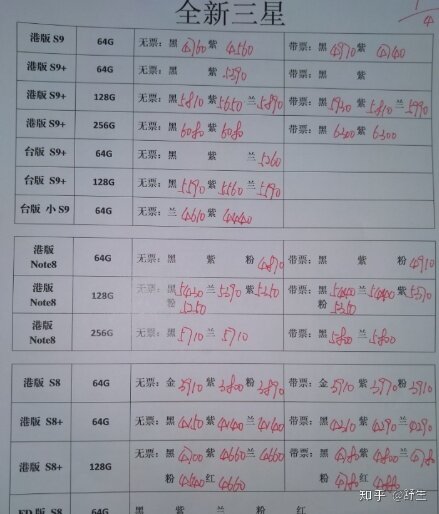 全新三星
1/4
港版 S9 64G 无票：黑 4760 紫 4560 带票：黑 4970 紫 4740
港版 S9+ 64G 无票：黑 紫 5390 带票：黑 紫
港版 S9+ 128G 无票：黑 5810 紫 5650 兰 5890 带票：黑 5930 紫 5810 兰 5990
港版 S9+ 256G 无票：黑 6080 紫 6080 带票：黑 6300 紫 6300
台版 S9+ 64G 无票：黑 紫 兰 5260
台版 S9+ 128G 无票：黑 5590 紫 5560 兰 5590
台版 小 S9 64G 无票：兰 4610 紫 4440
港版 Note8 64G 无票：黑 紫 粉 4870 带票：黑 紫 粉 4910
港版 Note8 128G 无票：黑 兰 5390 紫 5250 带票：黑 5440 兰 5440 紫 5370
粉 5250 粉 5350
港版 Note8 256G 无票：黑 5710 兰 5710 带票：黑 5800 兰 5800
港版 S8 64G 无票：金 3910 紫 3800 粉 3890 带票：金 3910 紫 3970 粉 3910
港版 S8+ 64G 无票：黑 4150 紫 4140 兰 4140 带票：黑 4310 紫 4290 兰 4290
港版 S8+ 128G 无票：黑 4700 紫 4660 兰 4660 带票：黑 4780 紫 4800 兰 4780
粉 红 4660 粉 4780 红
S8 64G 黑 紫 兰 粉 红
知乎